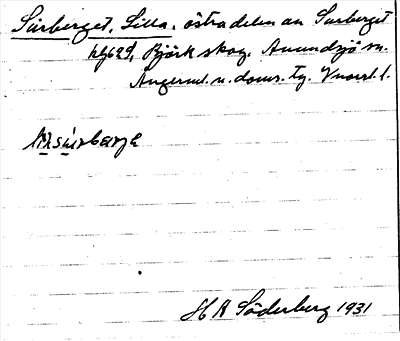 Surberget, Lilla. östra delen av Surberget
hf629, Björk skog. Anundsjö sn.
Ångerml. n. doms. tg.
H A Söderberg 1931